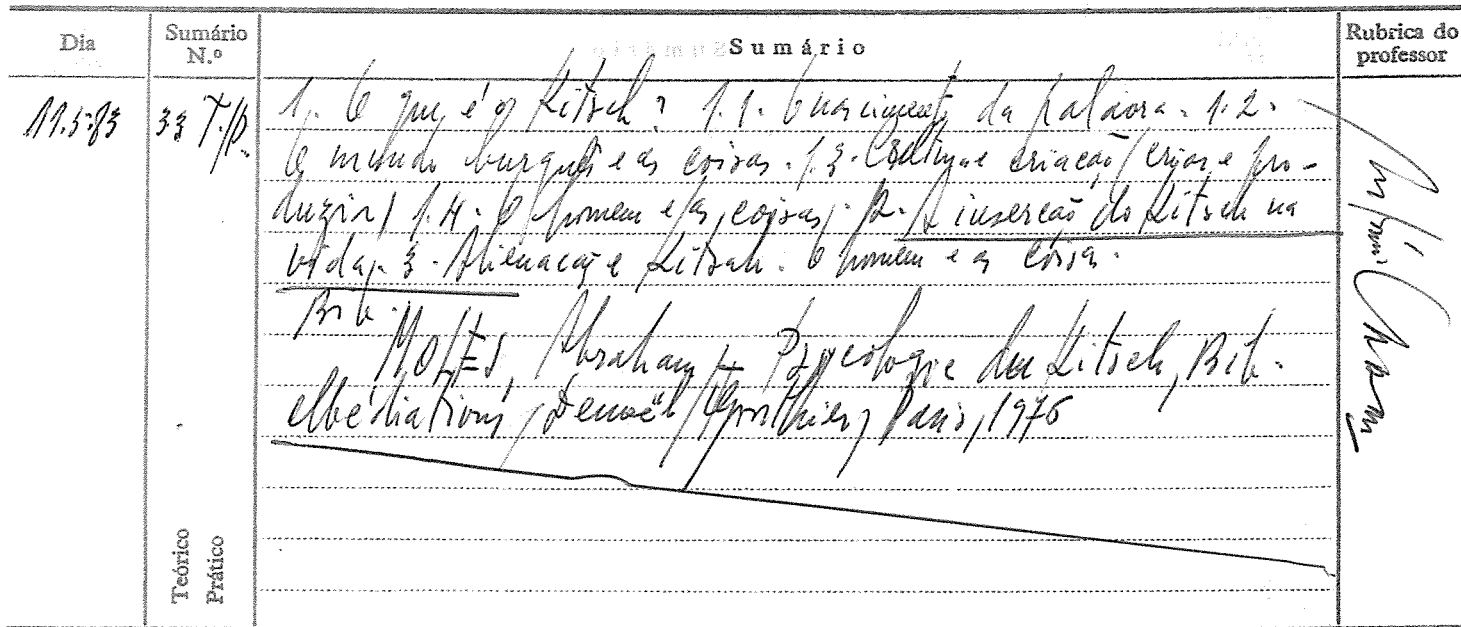 Dia
Sumário N.º
Sumário
Rubrica do professor
11.5.83
33 T./P.
1. O que é o Kitsch? 1.1. O nascimento da palavra. 1.2.
O mundo burguês e as coisas. 1.3. e criação (criar e pro-
duzir) 1.4. O homem e as coisas. 2. A inserção do Kitsch na
vida. 3. Alienação e Kitsch. O homem e as coisas.
Bib.
MOLES, Abraham, Psycologie du Kitsch, Bib.
Médiations, Denoël/Gonthier, Paris, 1976
Teórico
Prático